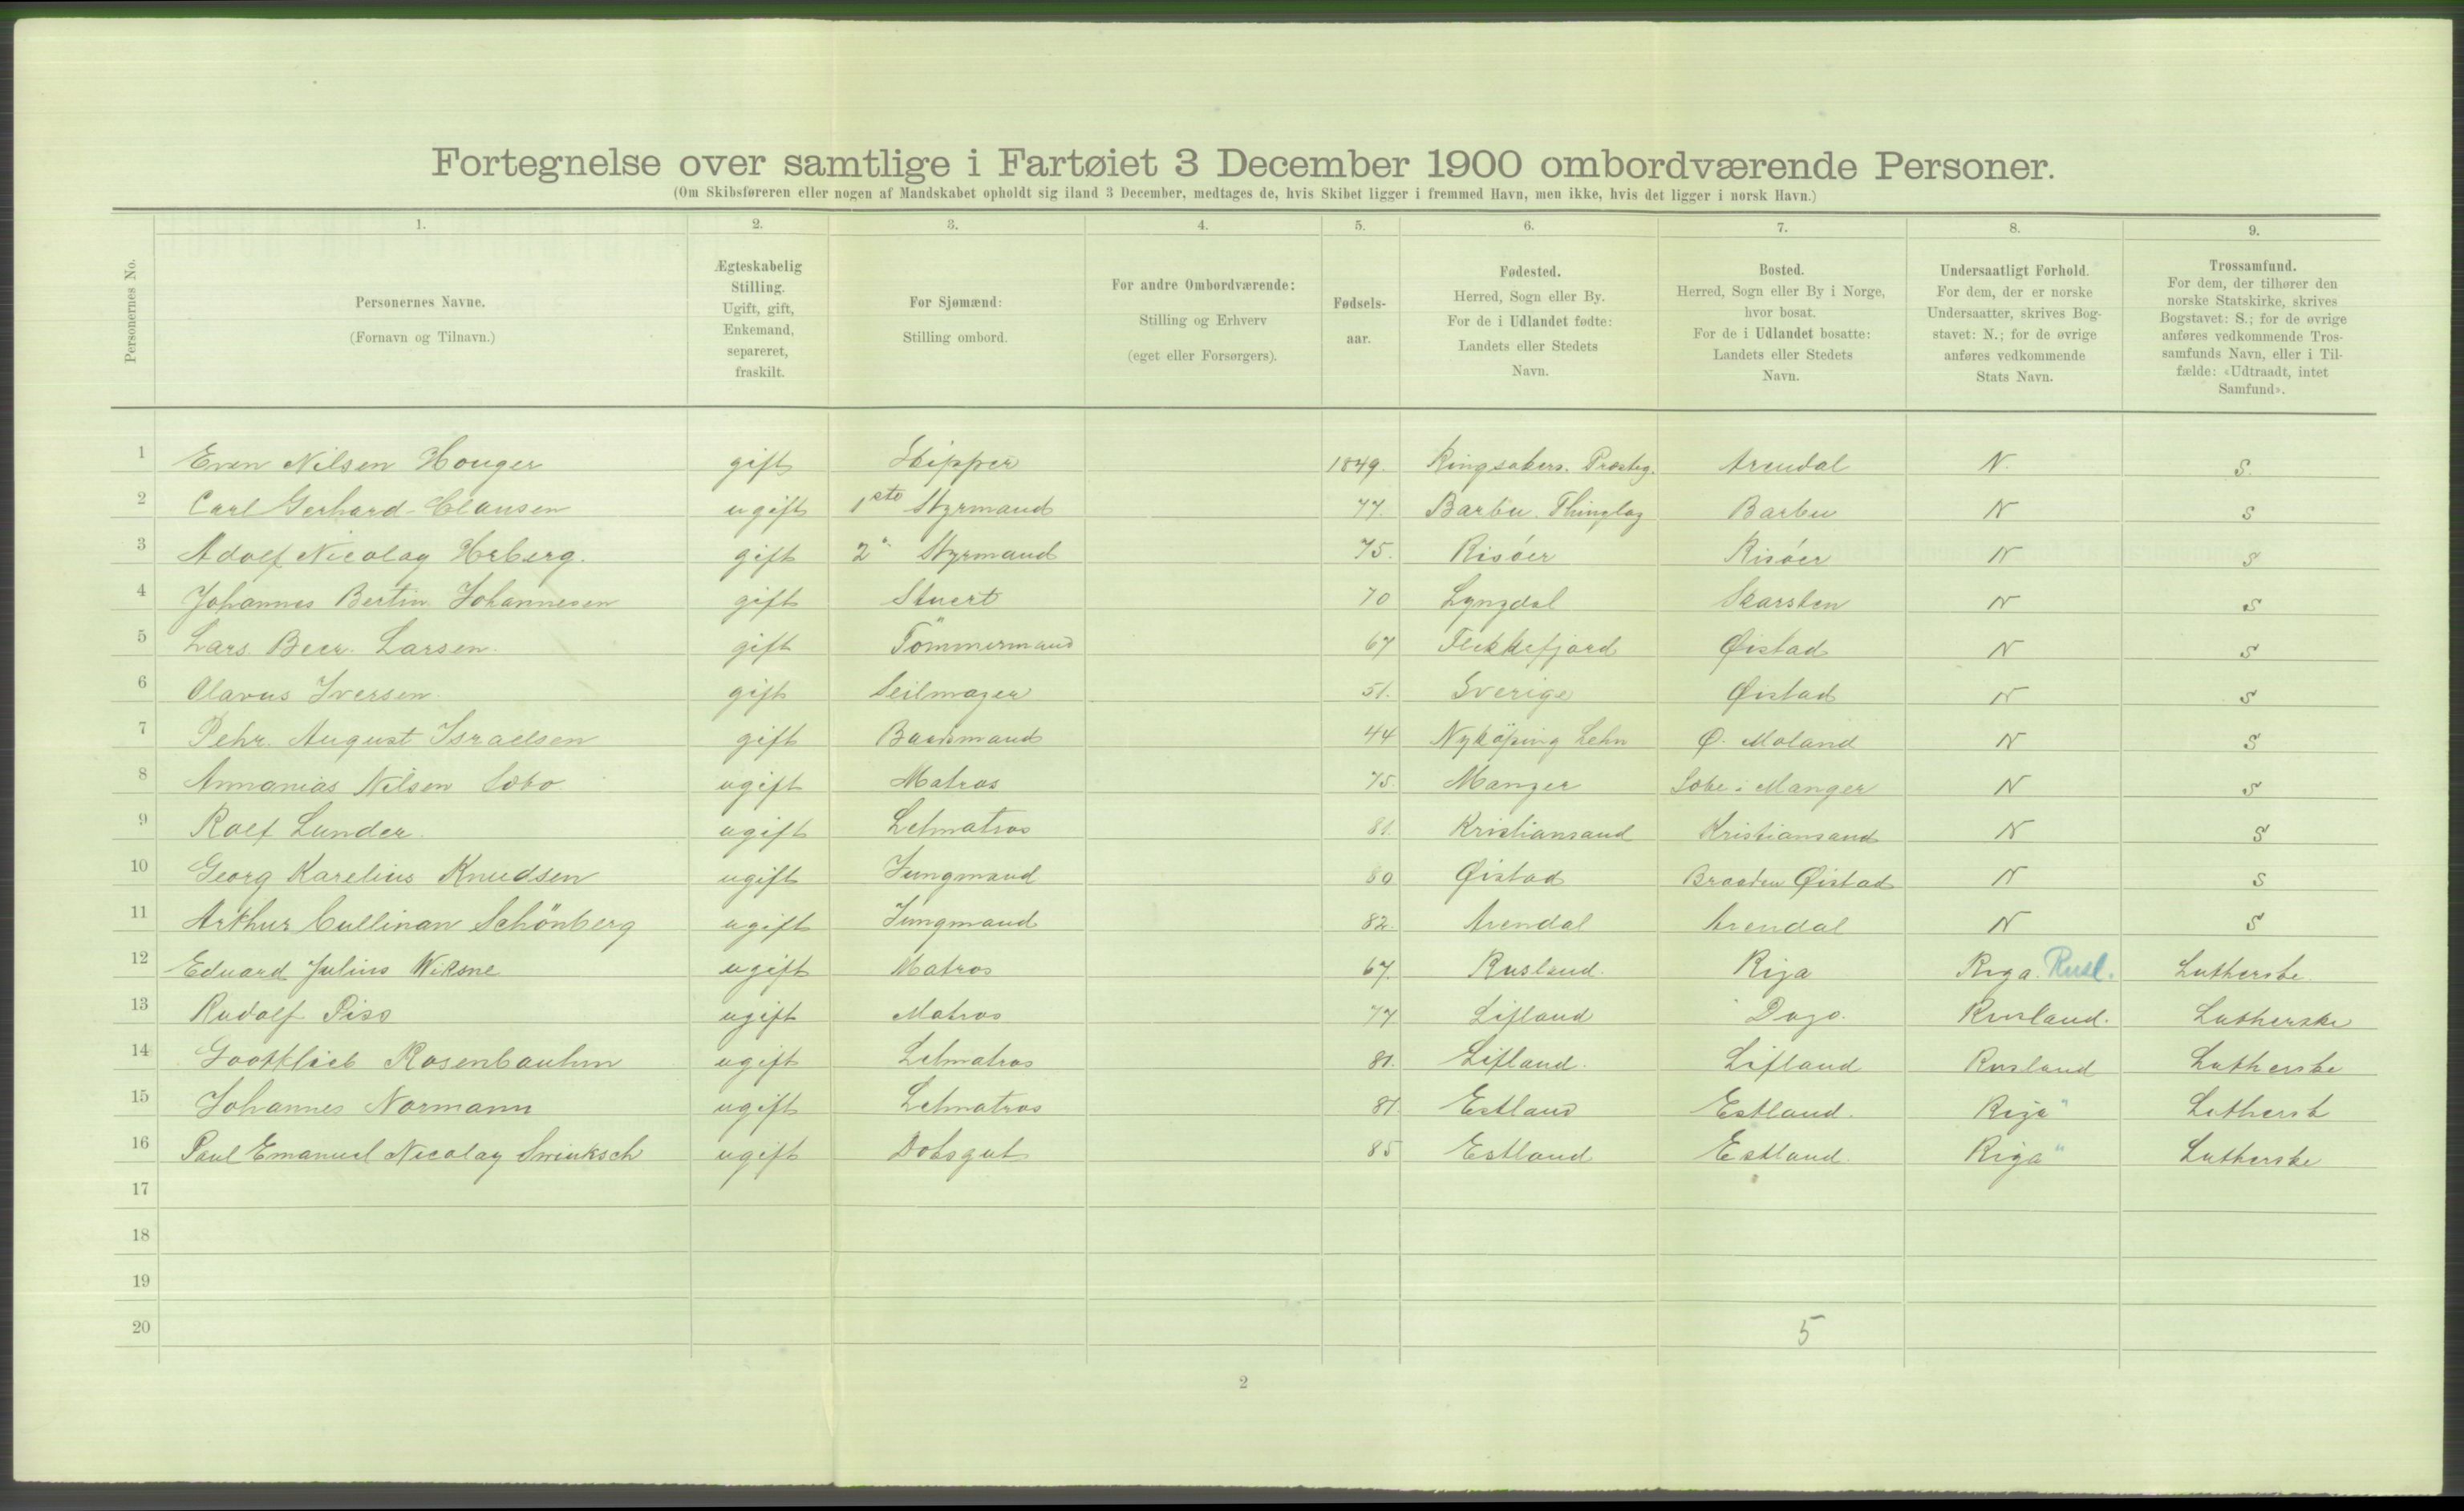 Fortegnelse over samtlige i Fartøiet 3 December 1900 ombordværende Personer.
(Om Skibsføreren eller nogen af Mandskabet opholdt sig iland 3 December, medtages de, hvis Skibet ligger i fremmed Havn, men ikke, hvis det ligger i norsk Havn.)
1. 2. 3. 4. 5. 6. 7. 8. 9.
Personernes No.
Personernes Navne.
(Fornavn og Tilnavn.)
Ægteskabelig
Stilling.
Ugift, gift,
Enkemand,
separeret,
fraskilt.
For Sjømænd:
Stilling ombord.
For andre Ombordværende:
Stilling og Erhverv
(eget eller Forsørgers).
Fødsels-
aar.
Fødested.
Herred, Sogn eller By.
For de i Udlandet fødte:
Landets eller Stedets
Navn.
Bosted.
Herred, Sogn eller By i Norge,
hvor bosat.
For de i Udlandet bosatte:
Landets eller Stedets
Navn.
Undersaatligt Forhold.
For dem, der er norske
Undersaatter, skrives Bog-
stavet: N.; for de øvrige
anføres vedkommende
Stats Navn.
Trossamfund.
For dem, der tilhører den
norske Statskirke, skrives
Bogstavet: S.; for de øvrige
anføres vedkommende Tros-
samfunds Navn, eller i Til-
fælde: «Udtraadt, intet
Samfund».
1 Even Nilsen Houger gift Skipper 1849. Ringsakers. Præsteg. Arendal N. S.
2 Carl Gerhard Clausen ugift 1ste Styrmand 77. Barbu. Thinglag Barbu N S
3 Adolf Nicolay Herberg. gift 2" Styrmand 75. Risöer Risöer N S
4 Johannes Bertin Johannesen gift Stuert 70 Lyngdal N S
5 Lars Beer. Larsen. gift Tömmermand 67 Flekkefjord Øistad N S
6 Olavus Iversen. gift Seilmager 51. Sverige Øistad N S
7 Pehr. August Israelsen gift Baadsmand 44 Nyköping Lehn Ø. Moland N S
8 Annanias Nilsen Sæbo ugift Matros 75. Manger Sæbe i Manger N S
9 Rolf Lunder. ugift Letmatros 81. Kristiansand Kristiansand N S
10 Georg Karelius Knudsen ugift Jungmand 80 Øistad Braaten Øistad N S
11 Arthur Cullinan Schönberg ugift Jungmand 82. Arendal Arendal N S
12 Eduard Julius Wiksne ugift Matros 67. Rusland. Riga Riga. Rusl. Lutherske.
13 Rudolf Piss ugift Matros 77 Lifland Dago. Rusland. Lutherske
14 Gootklieb Rosenbauhm ugift Letmatros 81. Lifland. Lifland Rusland Lutherske
15 Johannes Normann ugift Letmatros 81 Estland Estland. Riga" Lutherst
16 Paul Emanuel Nicolay Swinksch ugift Doksgut 85 Estland Estland. Riga" Lutherske
17
18
19
20
5
2